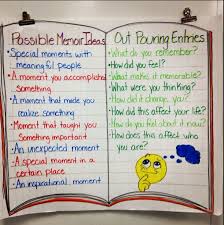 Possible Memoir Ideas
• Special moments with
meaningful people
• A moment you accomplished
something
• A moment that made you
realize something
• Moment that taught you
something important
• An unexpected moment
• A special moment in a
certain place
• An inspirational moment
Out Pouring Entries
• What do you remember?
• How did you feel?
• What makes it memorable?
• What were you thinking?
• How did it change you?
• How did this affect your life?
• How do you feel about it now?
• How does this affect who
you are?